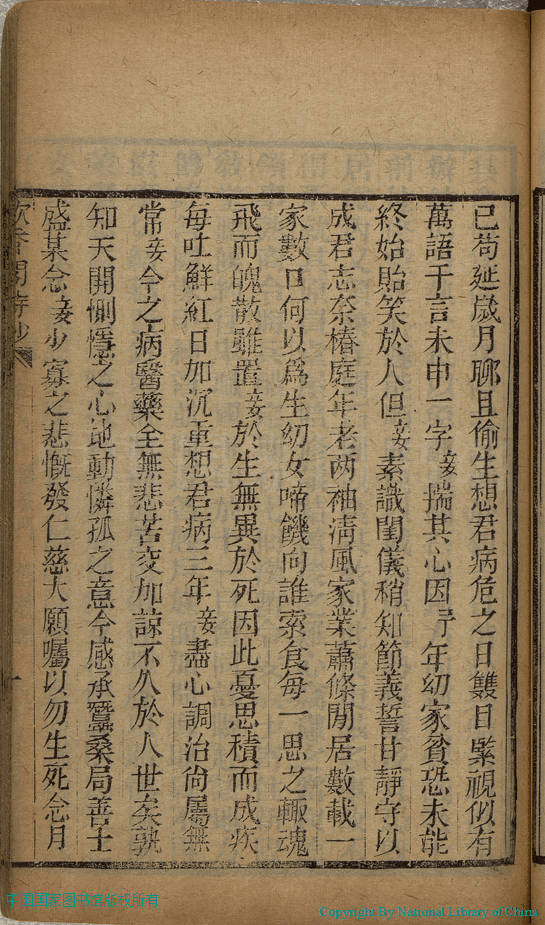 已苟延歲月聊且偷生想君病危之日雙日緊視似有
萬語千言未申一字妾揣其心因年幼家貧恐未能
終始貽笑於人但妾素識閨儀稍知節義誓甘靜守以
成君志奈椿庭年老两袖淸風家業蕭條閒居數載一
家數口何以爲生幼女啼饑向誰索食每一思之輙魂
飛而魄散雖置妾於生無異於死因此憂思積而成疾
每吐鮮紅日加沉重想君病三年妾盡心調治尙屬無
常妾今之病醫藥全無悲苦交加諒不久於人世矣孰
知天開惻隱之心地動憐孤之意今感承蠶桑局善士
盛某念妾少寡之悲慨發仁慈大願囑以勿生死念月
中国国家图书馆版权所有
Copyright By National Library of China